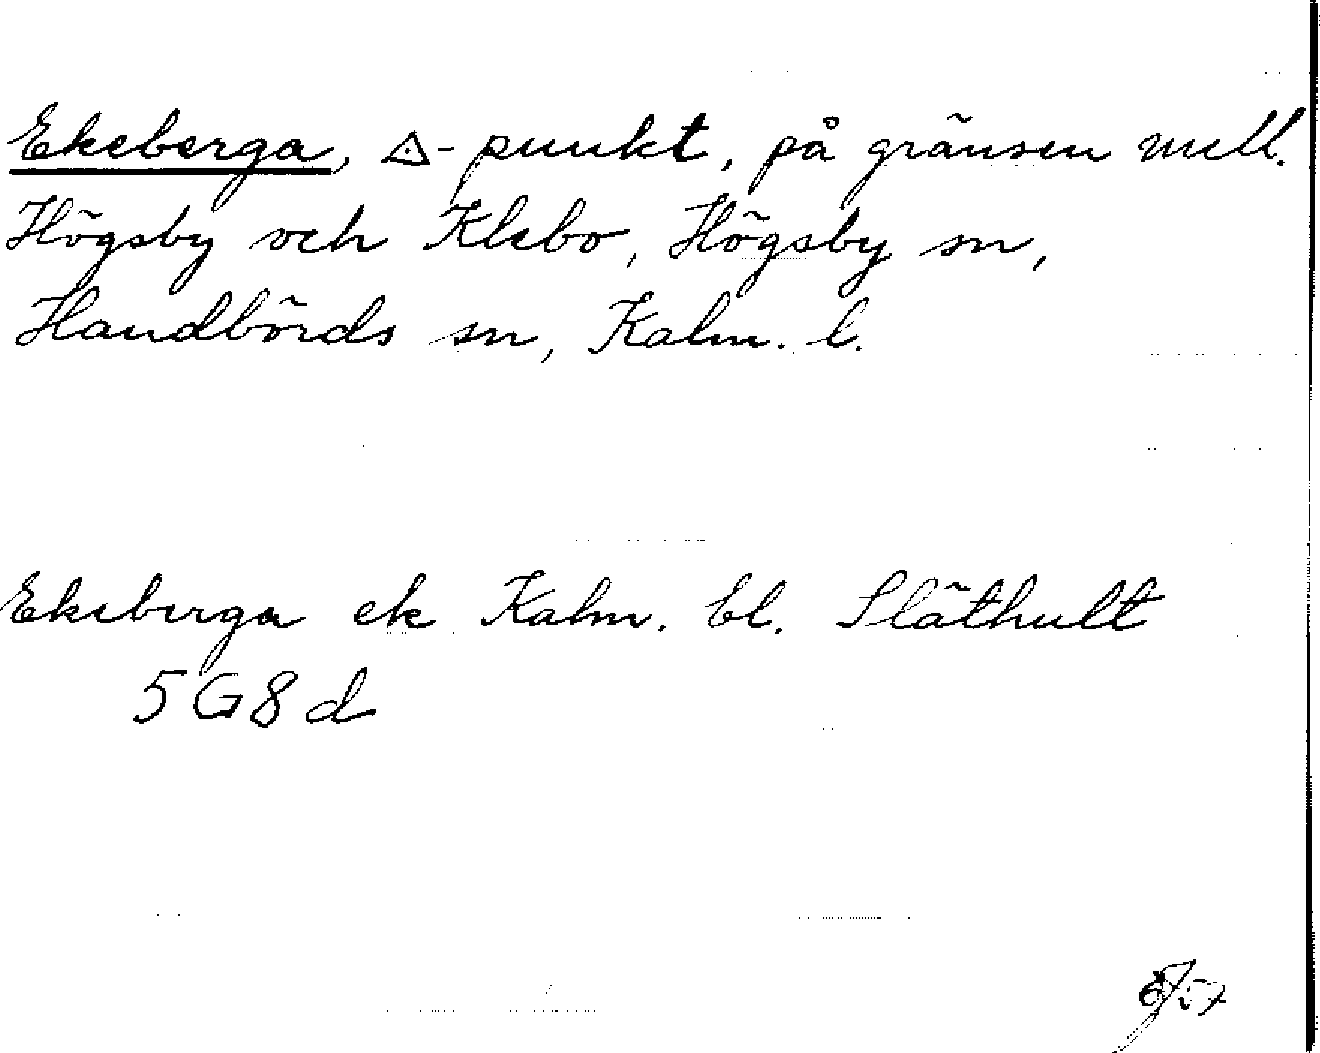 Ekeberga, △-punkt, på gränsen mell.
Högsby och Klebo, Högsby sn,
Handbörds sn, Kalm. l.
Ekeberga ek Kalm. bl. Släthult
5G8d